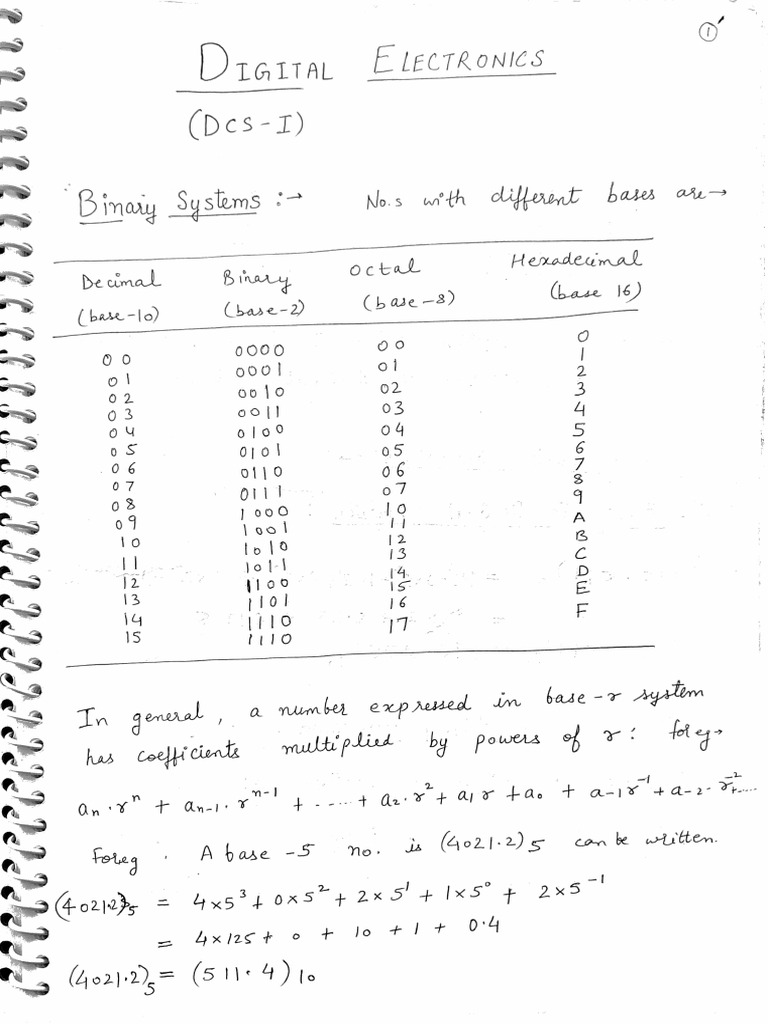 ①
DIGITAL ELECTRONICS
(DCS-I)
Binary Systems :→ No.s with different bases are→
Decimal Binary Octal Hexadecimal
(base-10) (base-2) (base-8) (base 16)
00 0000 00 0
01 0001 01 1
02 0010 02 2
03 0011 03 3
04 0100 04 4
05 0101 05 5
06 0110 06 6
07 0111 07 7
08 1000 10 8
09 1001 11 9
10 1010 12 A
11 1011 13 B
12 1100 14 C
13 1101 15 D
14 1110 16 E
15 1110 17 F
In general, a number expressed in base-r system
has coefficients multiplied by powers of r: foreg→
aₙ.rⁿ + aₙ₋₁.rⁿ⁻¹ + ..... + a₂.r² + a₁r + a₀ + a₋₁r⁻¹ + a₋₂.r⁻²+.....
Foreg. A base-5 no. is (4021.2)₅ can be written.
(4021.2)₅ = 4×5³ + 0×5² + 2×5¹ + 1×5⁰ + 2×5⁻¹
= 4×125 + 0 + 10 + 1 + 0.4
(4021.2)₅ = (511.4)₁₀